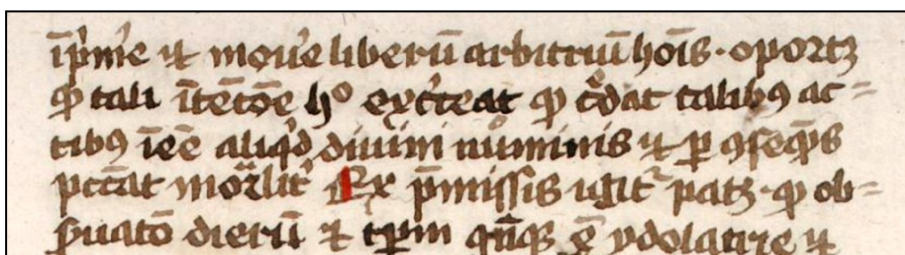 īp̄m̄e ⁊ mou̾e liberū arbitriū hoīs · oportꝫ
ꝙ tali ītētōe hᵒ exc̾ceat ꝙ c̾dat talibꝰ ac=
tibꝰ īeē aliqͥd diuini numinis ⁊ ꝑ ꝯseq̄ns
pctāt moͬalit̾ Ex p̄missis igitᷣ patꝫ · ꝙ ob=
s̾uatō dierū ⁊ tꝑm qn̄qꝫ ē ydolatrie ⁊